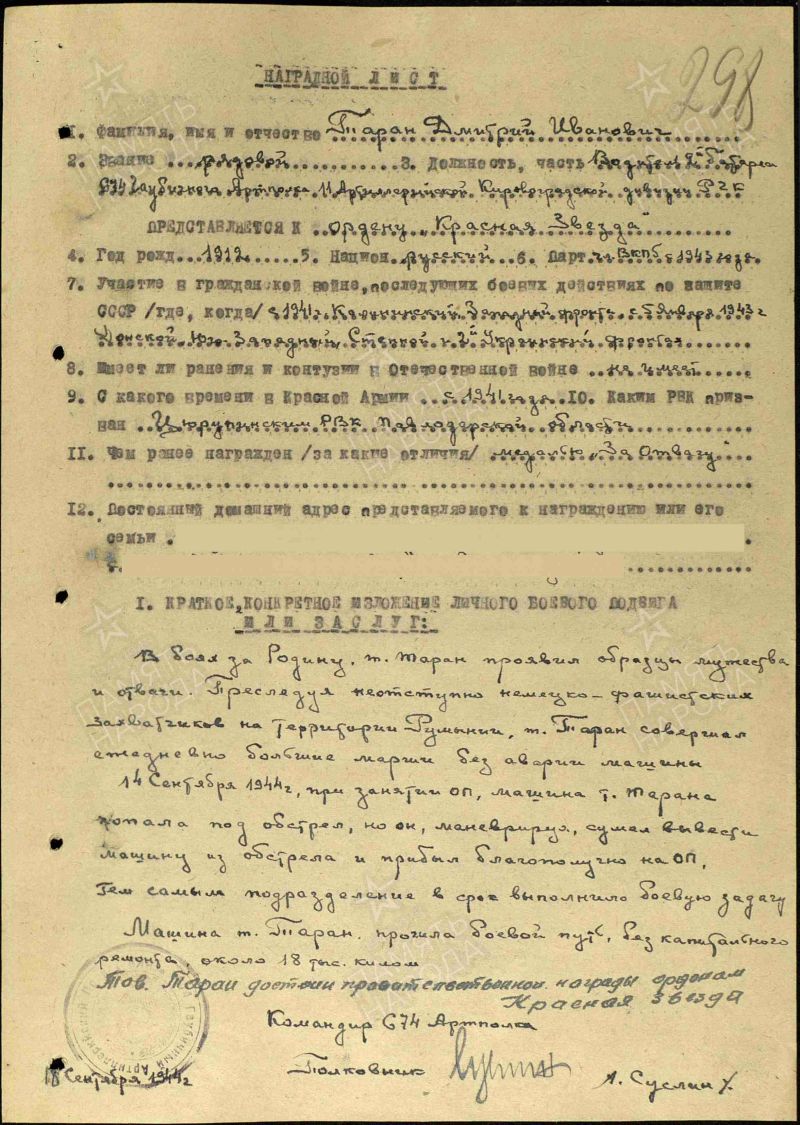 298
НАГРАДНОЙ ЛИСТ
1. Фамилия, имя и отчество Таран Дмитрий Иванович
2. Звание рядовой 3. Должность, часть Батареи
674 Гаубичного Артполка 11 Артиллерийской Кировоградской дивизии РГК
ПРЕДСТАВЛЯЕТСЯ К ордену "Красная Звезда"
4. Год рожд. 1912 5. Национ. русский 6. Парт. ВКПб с 1943 года.
7. Участие в гражданской войне, последующих боевых действиях по защите
СССР /где, когда/ с 1941г. Калининский, Западный фронт, с января 1943г
Донской, Юго-Западный, Степной и 2й Украинский фронтах
8. Имеет ли ранения и контузии в Отечественной войне не имеет
9. С какого времени в Красной Армии с 1941 года. 10. Каким РВК приз-
ван Цюрупинским РВК Павлодарской области
11. Чем ранее награжден /за какие отличия/ медаль "За Отвагу"
12. Постоянный домашний адрес представляемого к награждению или его
семьи
I. КРАТКОЕ, КОНКРЕТНОЕ ИЗЛОЖЕНИЕ ЛИЧНОГО БОЕВОГО ПОДВИГА
ИЛИ ЗАСЛУГ:
В боях за Родину, т. Таран проявил образцы мужества
и отваги. Преследуя неотступно немецко-фашистских
захватчиков на территории Румынии, т. Таран совершал
ежедневно большие марши без аварии машины
14 Сентября 1944г, при занятии ОП, машина т. Тарана
попала под обстрел, но он, маневрируя, сумел вывести
машину из обстрела и прибыл благополучно на ОП,
тем самым подразделение в срок выполнило боевую задачу
Машина т. Таран, прошла боевой путь, без капитального
ремонта, около 18 тыс. килом
Тов. Таран достоин правительственной награды орденом
Красная звезда
Командир 674 Артполка
Полковник А. Суслин
18 Сентября 1944г